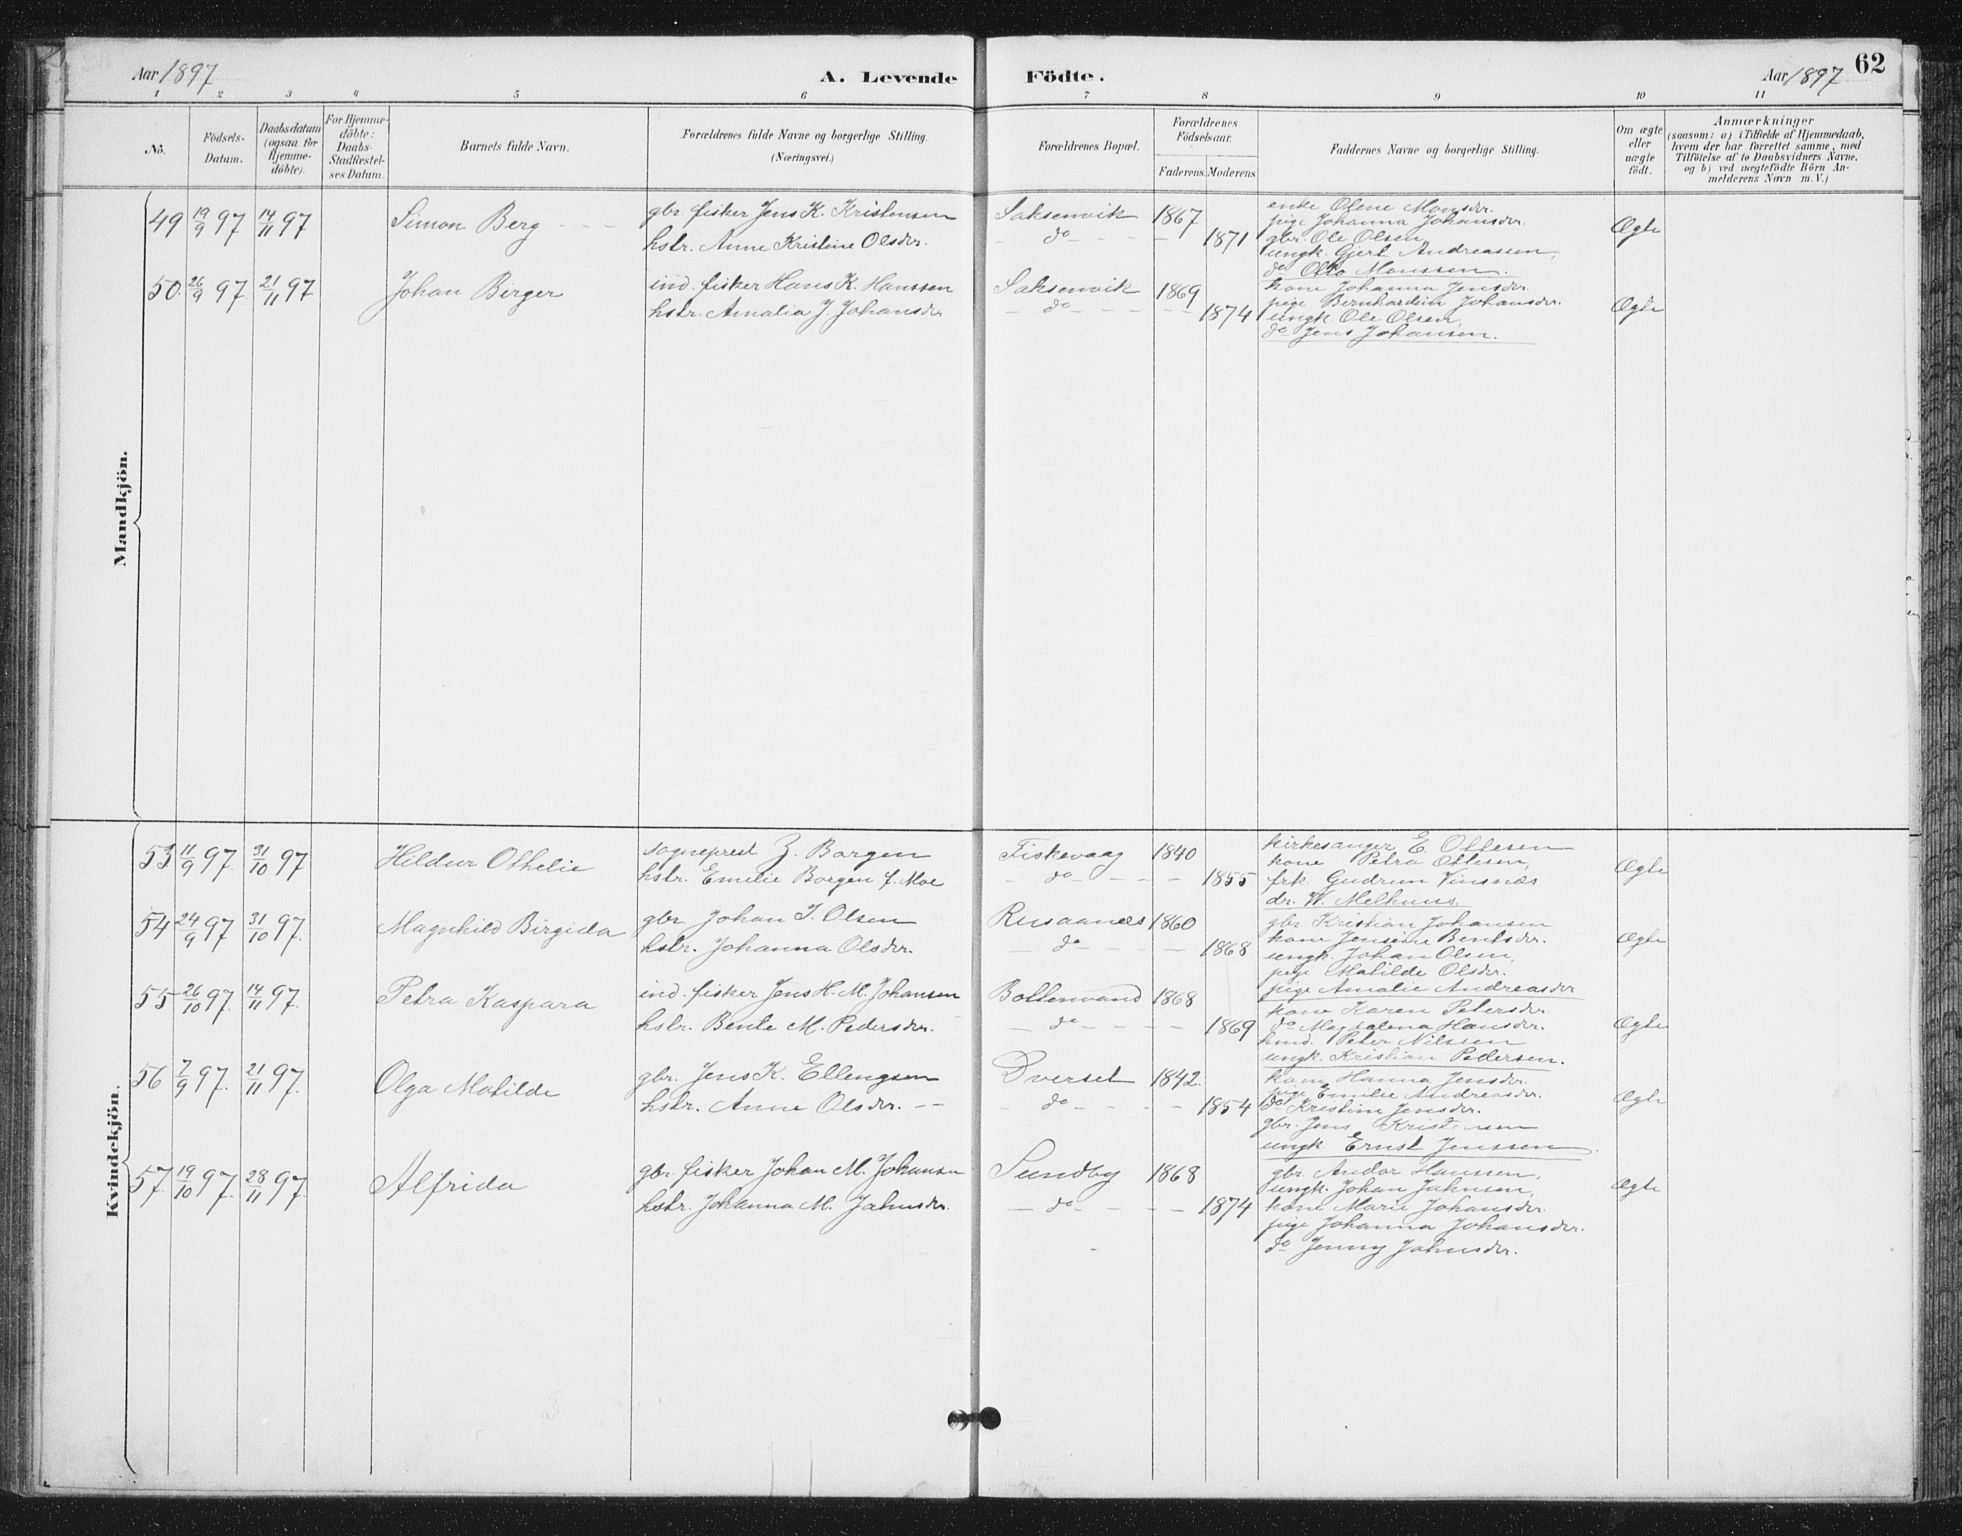 Aar 1897 A. Levende Födte. Aar 1897 62
1 2 3 4 5 6 7 8 9 10 11
No. Födsels-Datum. Daabsdatum (ogsaa for Hjemme-döbte). For Hjemme-döbte: Daabs-Stadfæstel-ses Datum. Barnets fulde Navn. Forældrenes fulde Navne og borgerlige Stilling. (Næringsvei.) Forældrenes Bopæl. Forældrenes Födselsaar. Faderens. Moderens. Faddernes Navne og borgerlige Stilling. Om ægte eller uægte födt. Anmærkninger (saasom: a) i Tilfælde af Hjemmedaab, hvem der har forrettet samme, med Tilföielse af to Daabsvidners Navne, og b) ved uægtefödte Börn An-melderens Navn m.V.)
Mandkjön.
49 19/9 97 14/11 97 Simon Berg gbr. fisker Jens K. Kristensen Saksenvik 1867 enke Olene Monsdr. Ægte
hstr. Anne Kristine Olsdr. do 1871 pige Johanna Johansdr.
gbr. Ole Olsen
ungk. Gjert Andreassen,
do Otto Monssen.
50. 26/9 97. 21/11 97 Johan Birger ind. fisker Hans K. Hanssen Saksenvik 1869 kone Johanna Jensdr. Ægte
hstr. Amalia J. Johansdr do 1874 pige Bernhardin Johansdr.
ungk. Ole Olsen,
do Jens Johansen.
Kvindekjön.
53 11/9 97. 31/10 97 Hildur Othelie sogneprest Z. Borgen Fiskevaag 1840 kirkesanger E. Ottesen Ægte
hstr. Emelie Borgen f. Moe do 1855 kone Petra Ottesen,
frk. Gudrun Vinsnæs
dr. W. Melhuus.
54 24/9 97 31/10 97. Magnhild Birgida gbr. Johan I. Olsen Rusaanes 1860 gbr Kristian Johansen Ægte
hstr. Johanna Olsdr. do 1868 kone Jensine Bentsdr.
ungk. Johan Olsen,
pige Matilde Olsdr.
pige Amalie Andreasdr
55 26/10 97. 14/11 97. Petra Kaspara ind. fisker Jens H. M. Johansen Bottenvand 1868 kone Karen Petersdr Ægte
hstr. Bente M. Pedersdr. do 1869 do Magdalena Hansdr.
Peter Nilssen
ungk. Kristian Pedersen.
56 7/9 97. 21/11 97. Olga Matilde gbr. Jens K. Ellengsen Dverset 1842. kone Hanna Jensdr. Ægte
hstr. Anne Olsdr. do 1854 pige Emelie Andreasdr.
do Kristine Jensdr.
gbr. Jens Kristensen
ungk Ernst Jenssen
57. 19/10 97. 28/11 97. Alfrida gbr. fisker Johan M. Johansen Sundby 1868 gbr. Andor Hanssen, Ægte
hstr. Johanna M. Jahnsdr. do 1874 ungk. Johan Jahnsen,
kone Marie Johansdr.
pige Johanna Johansdr.
do Jenny Jahnsdr.